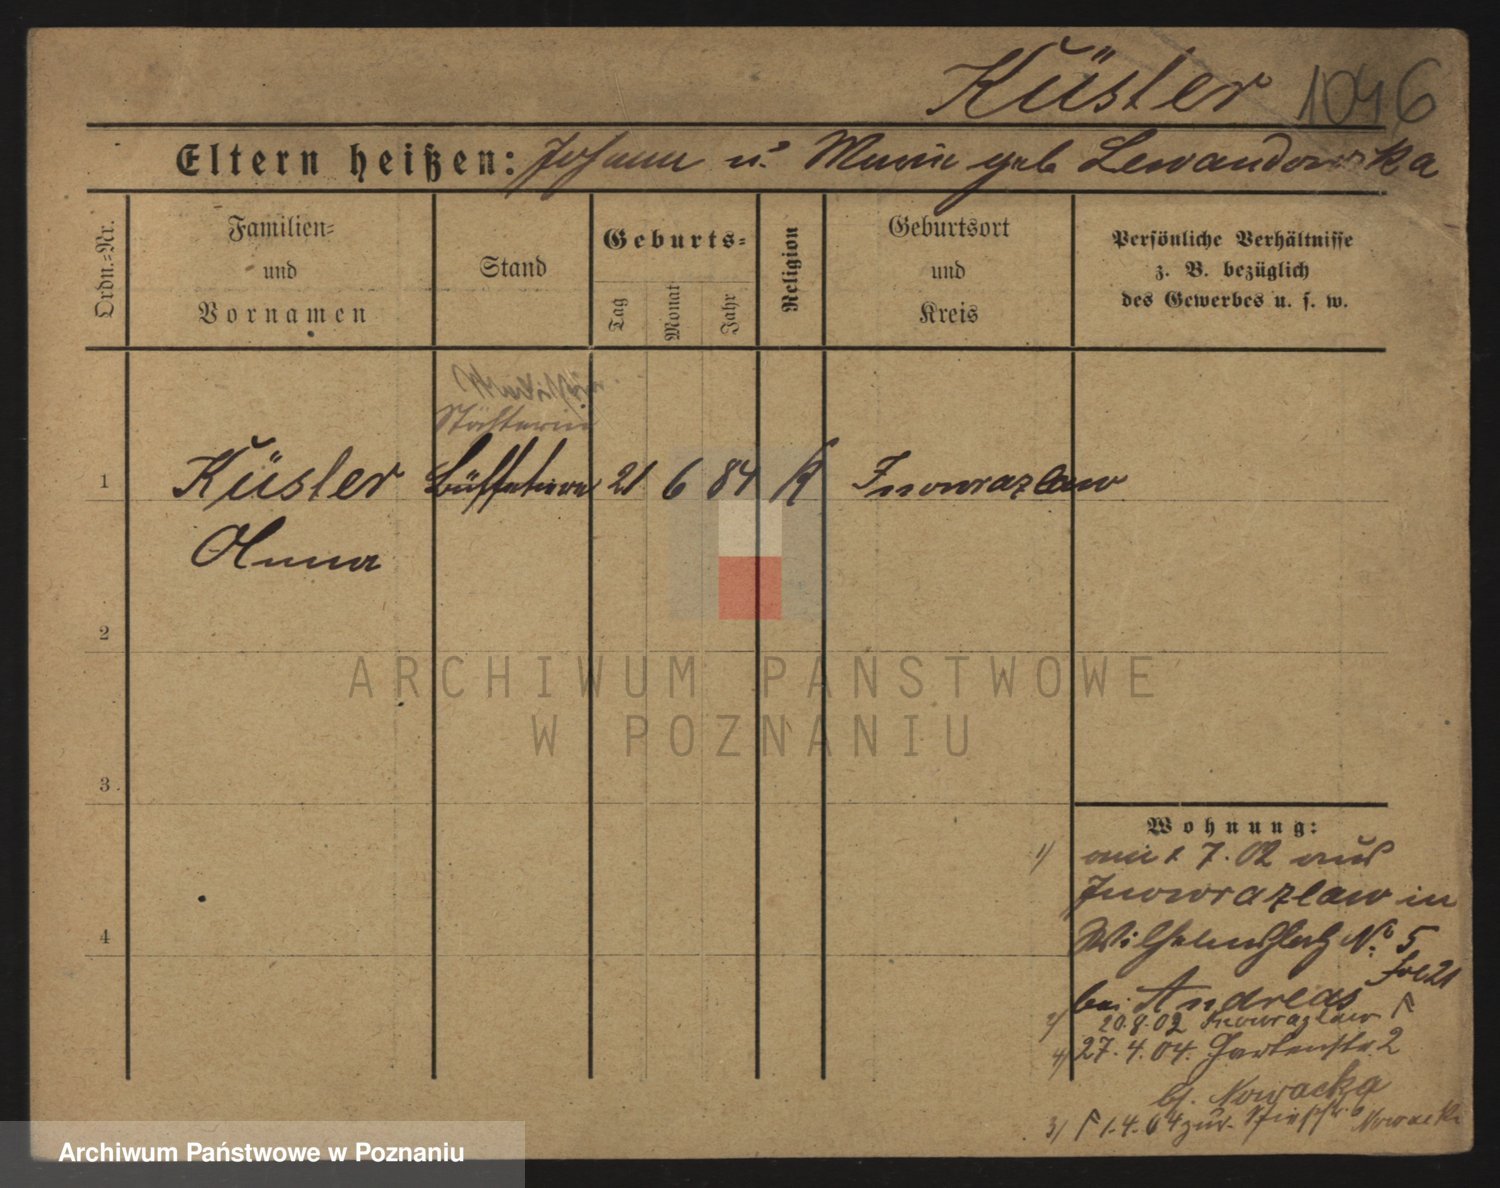 Küsler 1046
Eltern heißen: Johann u. Marie geb Lewandowska
Ordn.-Nr.
Familien-
und
Vornamen
Stand
Geburts-
Tag
Monat
Jahr
Religion
Geburtsort
und
Kreis
Persönliche Verhältnisse
z. B. bezüglich
des Gewerbes u. s. w.
1 Küsler 21 6 84 K Inowrazlaw
Anna
2
ARCHIWUM PAŃSTWOWE
W POZNANIU
3
4
Wohnung:
1) 7.02 aus
Inowrazlaw in
No 5
bei Andreas
2) 20.8.02 Inowrazlaw
4) 27.4.04. Gartenstr. 2
bf. Nowacka
3) 1.4.04 zur.
Archiwum Państwowe w Poznaniu